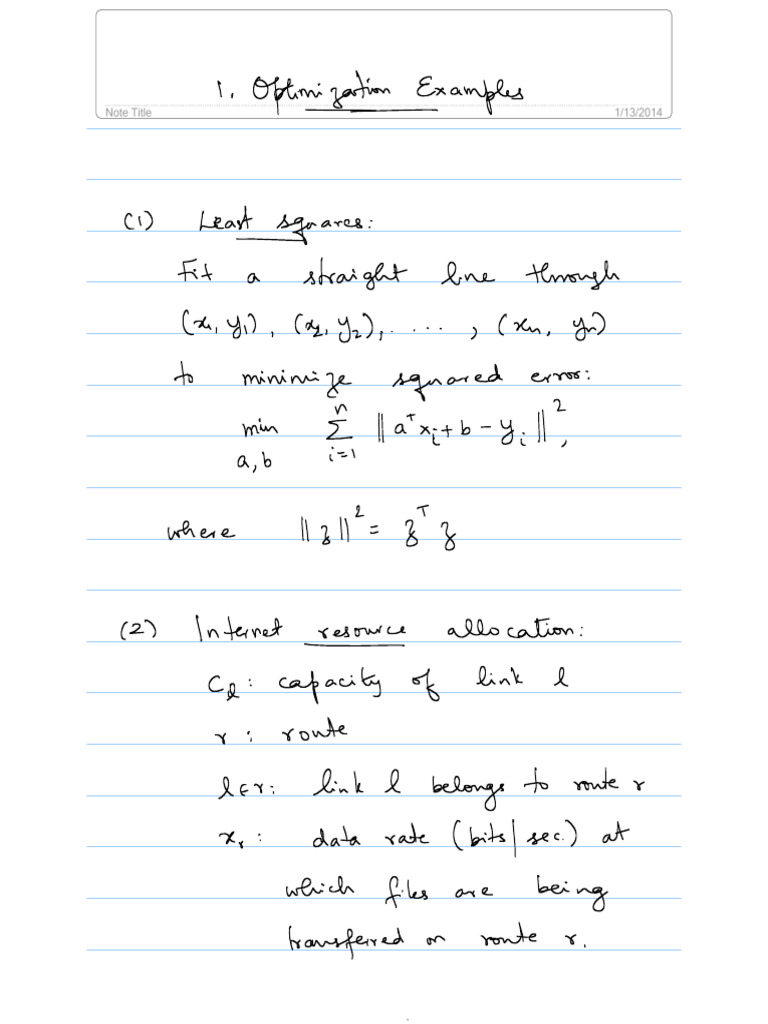 1. Optimization Examples
Note Title 1/13/2014
(1) Least squares:
Fit a straight line through
(x₁, y₁), (x₂, y₂), . . . . , (xₙ, yₙ)
to minimize squared error:
min_{a,b} ∑_{i=1}^{n} ‖aᵀxᵢ + b − yᵢ‖²,
where ‖z‖² = zᵀ z
(2) Internet resource allocation:
C_l : capacity of link l
r : route
l ∈ r : link l belongs to route r
xᵣ : data rate (bits/sec.) at
which files are being
transferred on route r.